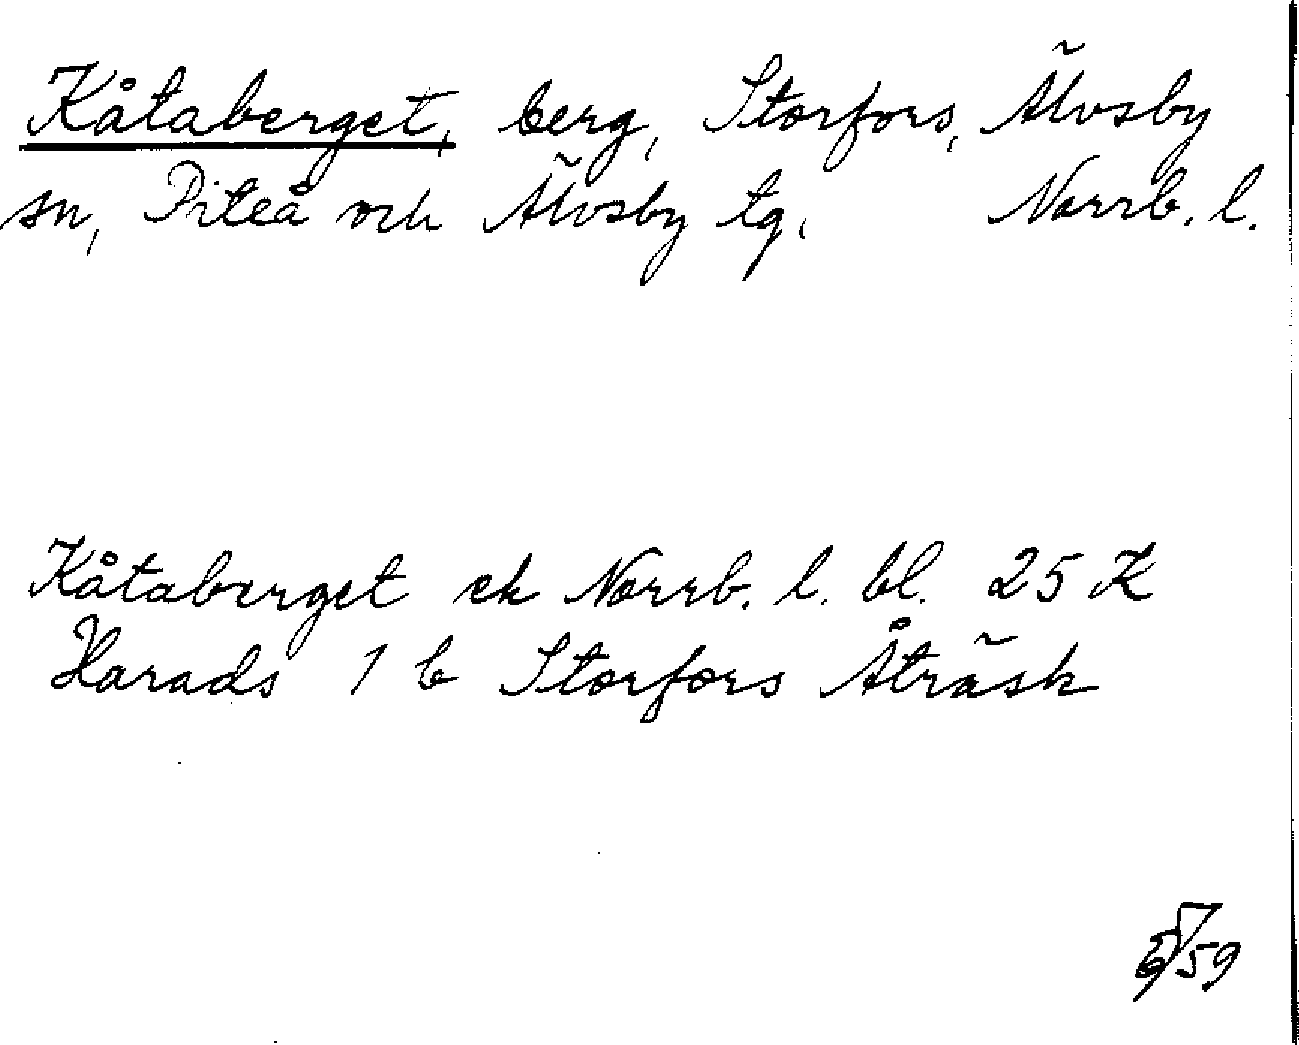 Kåtaberget, berg, Storfors, Älvsby
sn, Piteå och Älvsby tg. Norrb. l.
Kåtaberget ek Norrb. l. bl. 25 K
Harads 1 b Storfors Åträsk